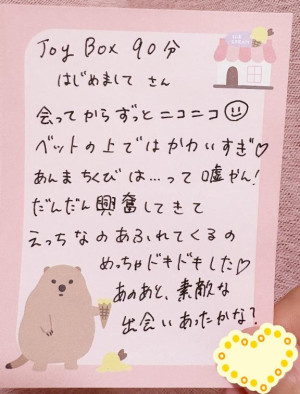 Joy Box 90分
はじめまして さん
会ってからずっとニコニコ
ベットの上ではかわいすぎ♡
あんまちくびは…って嘘やん!
だんだん興奮してきて
えっちなのあふれてくるの
めっちゃドキドキした♡
あのあと、素敵な
出会いあったかな?